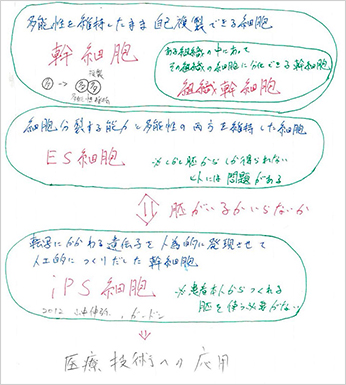 多能性を維持したまま自己複製できる細胞
幹細胞
複製
多 → 多 多
ある組織の中にあって
その組織の細胞に分化できる幹細胞
組織幹細胞
細胞分裂する能力と多能性の両方を維持した細胞
ES細胞
※しかし胚からしか得られない
ヒトには問題がある
胚がいるかいらないか
転写にかかわる遺伝子を人為的に発現させて
人工的につくりだした幹細胞
iPS細胞
※患者本人からつくれる
胚を使う必要がない
2012 山中伸弥, ガードン
医療技術への応用